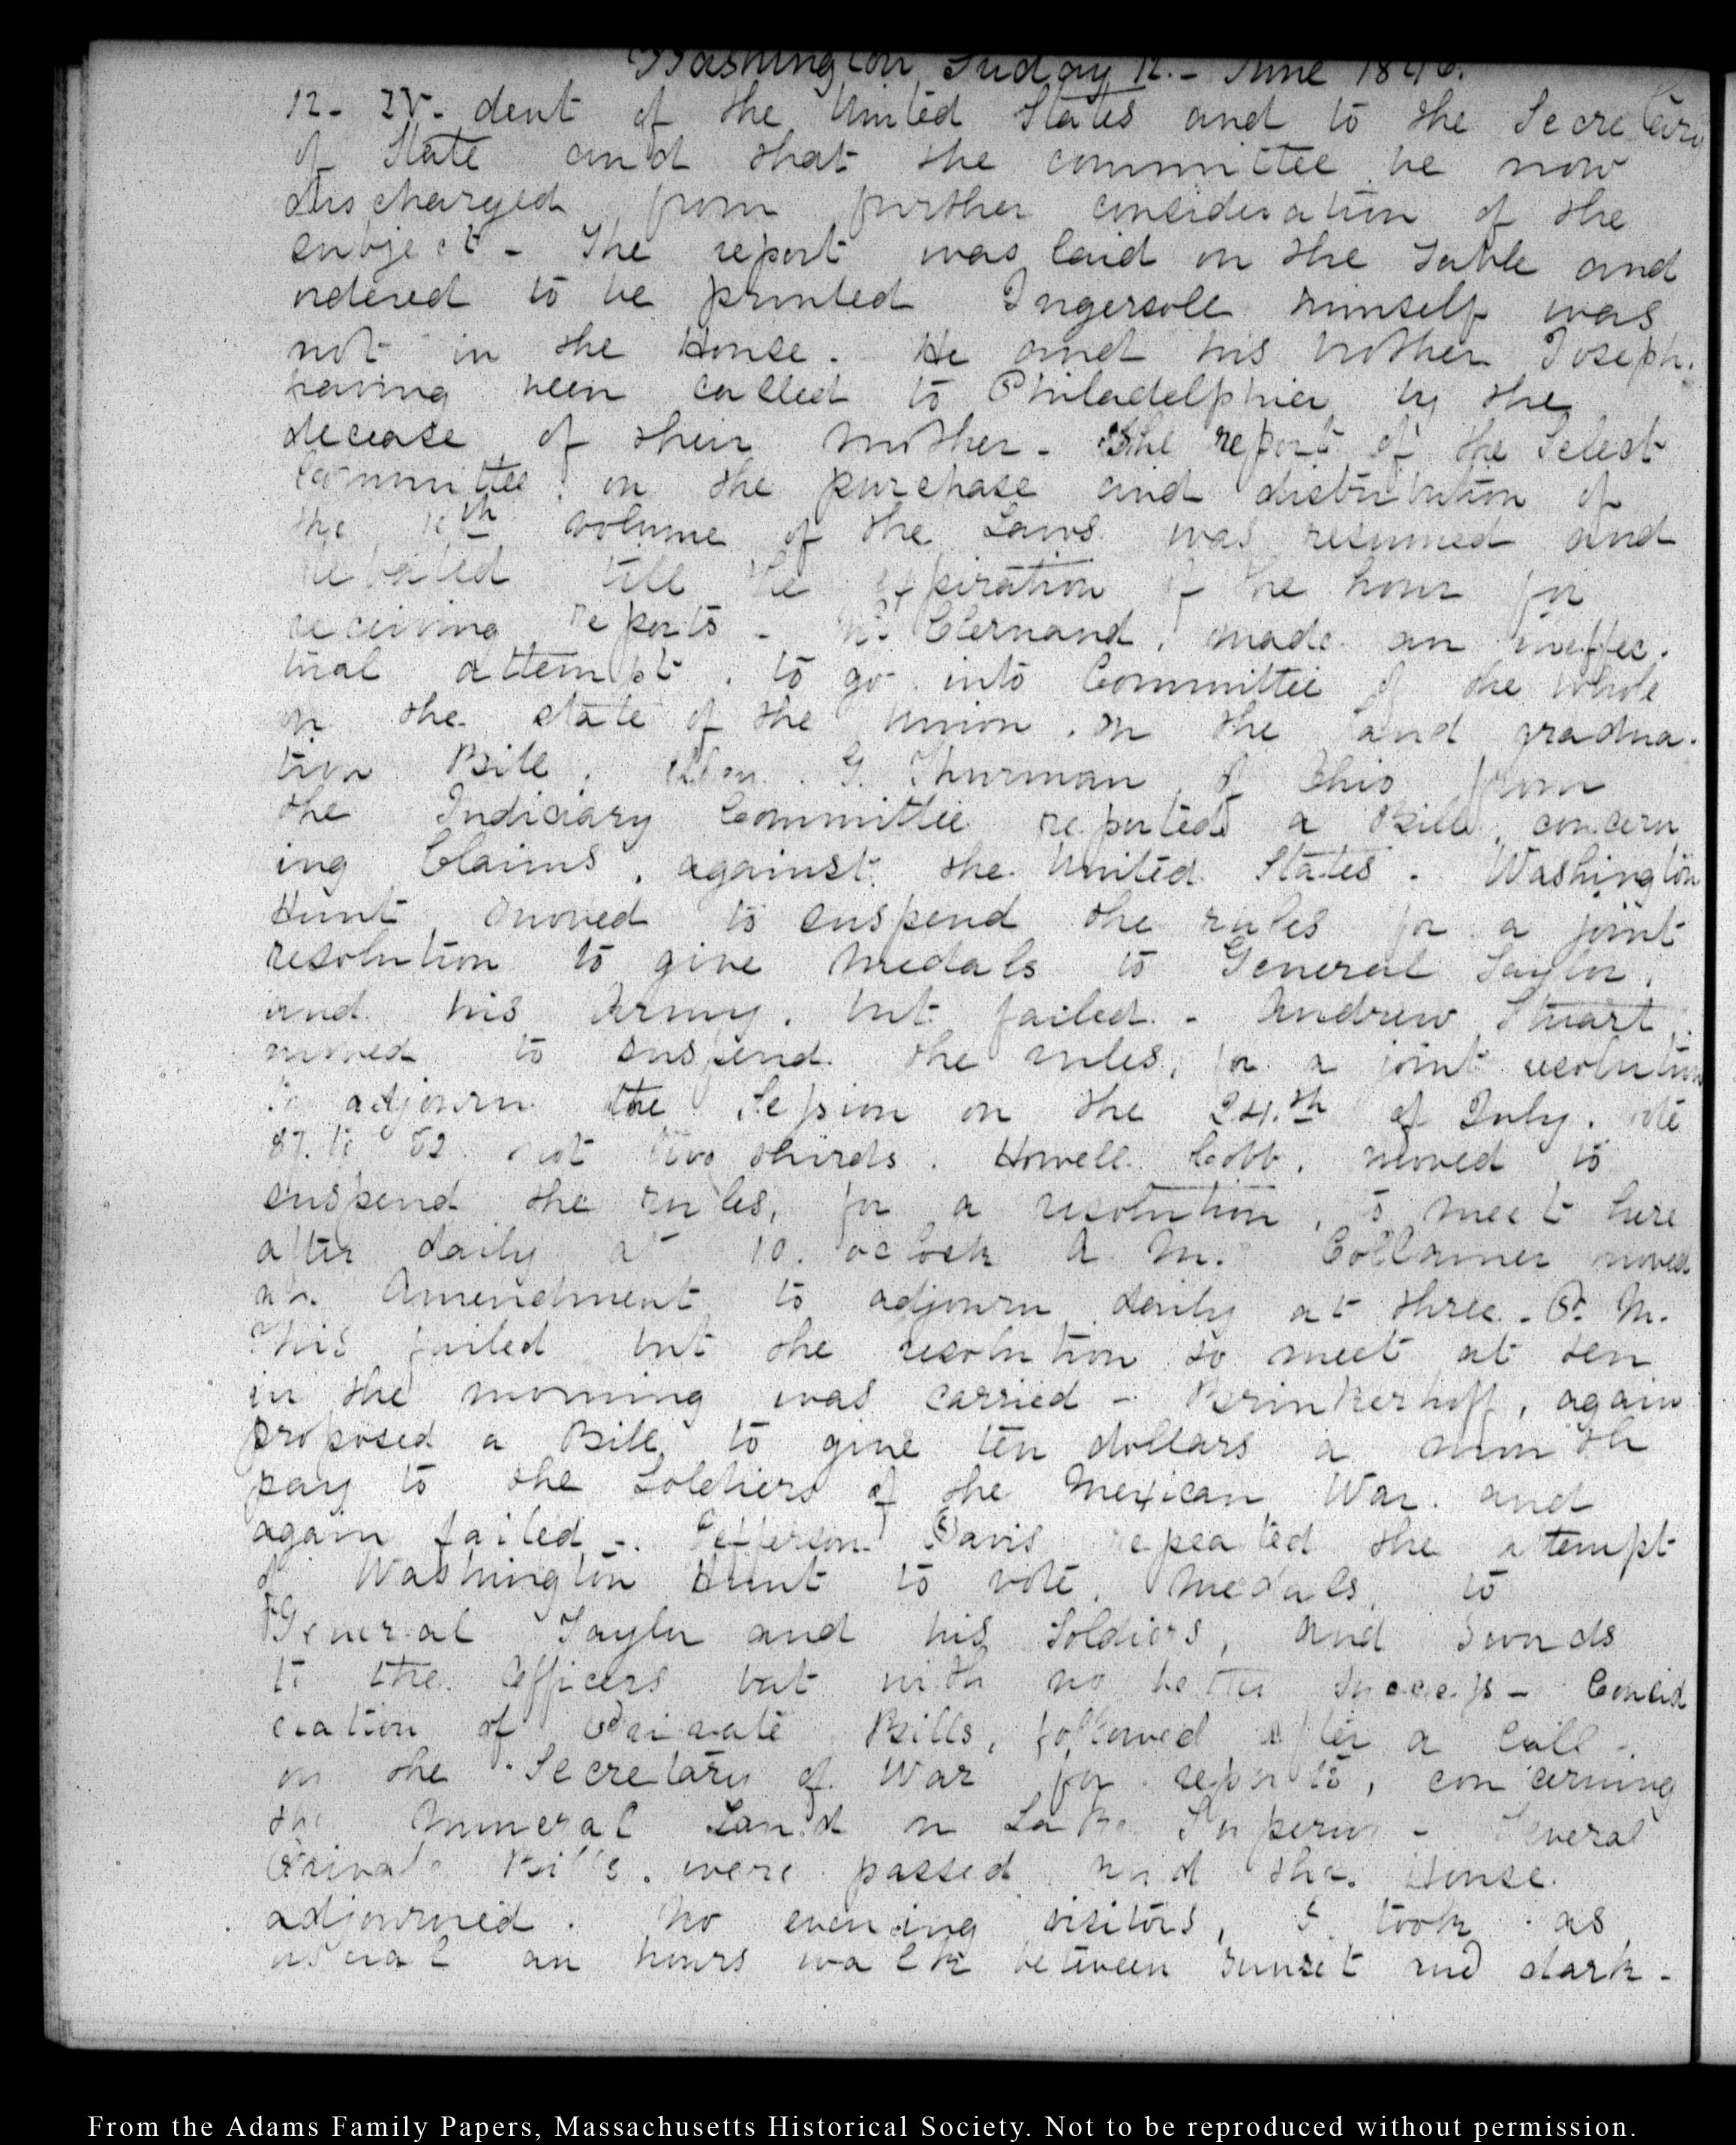 Washington Friday 12.- June 1846.
12- IV- dent of the United States and to the Secretary
of State and that the committee be now
discharged from further consideration of the
subject - The report was laid on the Table and
ordered to be printed Ingersoll himself was
not in the House. He and his brother Joseph.
having been called to Philadelphia by the
decease of their mother - The report of the Select
Committee, on the purchase and distribution of
the volume of the Laws was resumed and
debated till the expiration of the hour for
receiving reports - Mc. Clernand, made an ineffec.
tual attempt, to go into Committee of the whole
on the state of the Union, on the land gradua.
tion Bill, G. Thurman of Ohio from
the Judiciary Committee reported a Bill, concern
ing Claims, against the United States. Washington
Hunt moved to suspend the rules for a joint
resolution to give Medals to General Taylor,
and his Army, but failed. - Andrew Stuart,
moved to suspend the rules, for a joint resolution
to adjourn the Session on the 24.th of July. vote
87. to 52 not two thirds. Howell Cobb, moved to
suspend the rules, for a resolution, to meet here
after daily at 10. oclock A. M. Collamer moved
an Amendment to adjourn daily at three. P. M.
This failed but the resolution to meet at ten
in the morning was carried - Brinkerhoff, again
proposed a Bill to give ten dollars a month
pay to the Soldiers of the Mexican War. and
again failed -. Jefferson Davis repeated the attempt
of Washington Hunt to vote, Medals, to
General Taylor and his Soldiers, and Swords
to the Officers but with no better success - Consid
eration of Private Bills, followed after a Call -.
on the Secretary of War for reports, concerning
the Mineral Land on Lake Superior - Several
Private Bills. were passed and the House.
adjourned. No evening visitors, I took as
usual an hours walk between sunset and dark -
From the Adams Family Papers, Massachusetts Historical Society. Not to be reproduced without permission.